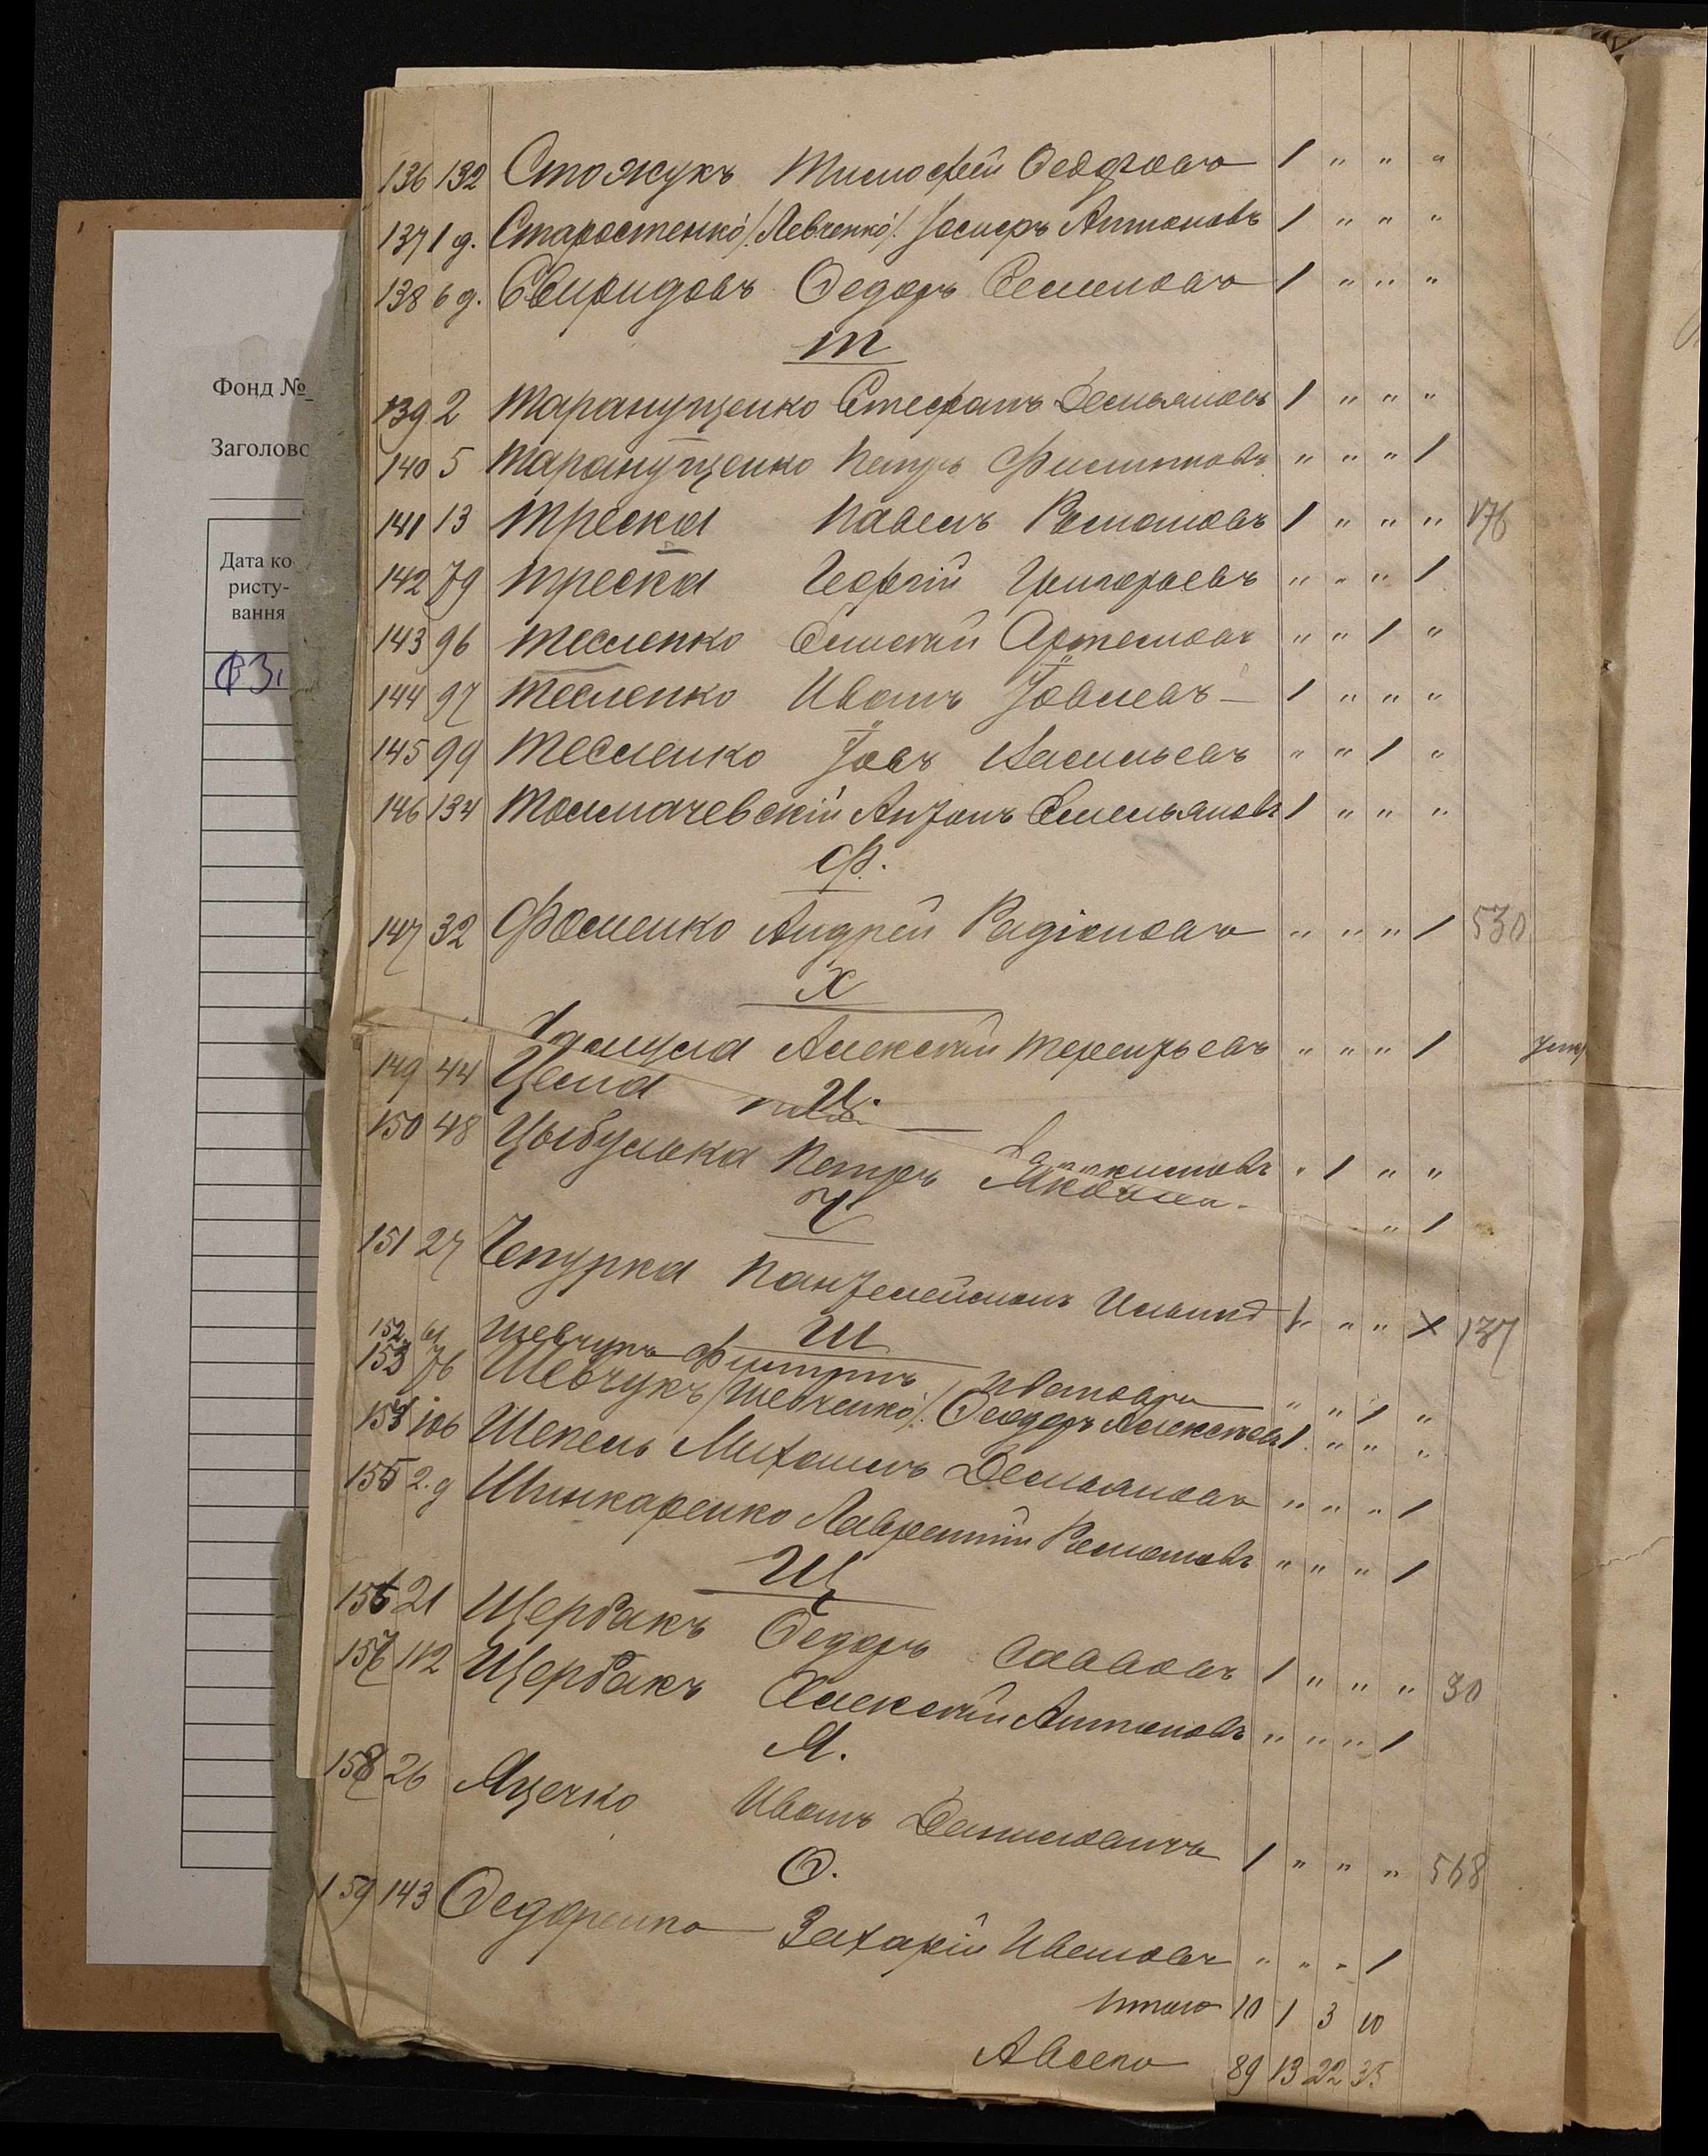 136 132 Стожукъ Тимофей Ѳеодоровъ 1 " " "
137 1 д. Старостенко /Левченко/ Іосифъ Антоновъ 1 " " "
138 6 д. Свиридовъ Ѳедоръ Семеновъ 1 " " "
Т
139 2 Таранущенко Стефанъ Демьяновъ 1 " " "
140 5 Таранущенко Петръ Филиповъ " " " 1
141 13 Треска Павелъ Романовъ 1 " " " 176
142 79 Треска Георгій Григорьевъ " " " 1
143 96 Тесленко Алексѣй Артемовъ " " 1 "
144 97 Тесленко Иванъ Іовлевъ 1 " " "
145 99 Тесленко Іовъ Васильевъ " " 1 "
146 134 Толмачевскій Антонъ Емельяновъ 1 " " "
Ф.
147 32 Фоменко Андрей Радіоновъ " " " 1 530
Х
Алексѣй Терентьевъ " " " 1
149 44 Цема
Ц.
150 48 Цыбулька Петръ " 1 " "
" 1
Ч
151 27 Чепурка Пантелеймонъ Ильинъ 1 " " х 137
Ш
152 61 Шевчукъ Филиппъ Ивановъ " " 1 "
153 76 Шевчукъ /Шевченко/ Ѳеодоръ Алексѣевъ 1 " " "
154 106 Шепель Михаилъ Демьяновъ " " " 1
155 2.д Шинкаренко Лаврентій Романовъ " " " 1
Щ
156 21 Щербакъ Ѳедоръ Саввовъ 1 " " " 30
157 112 Щербакъ Алексѣй Антоновъ " " " 1
Я.
158 26 Яцечко Иванъ Даниловичъ 1 " " " 568
Ѳ.
159 143 Ѳедоренко Захарій Ивановъ " " " 1
Итого 10 1 3 10
А всего 89 13 22 35
Фонд №
Заголово
Дата ко
ристу-
вання